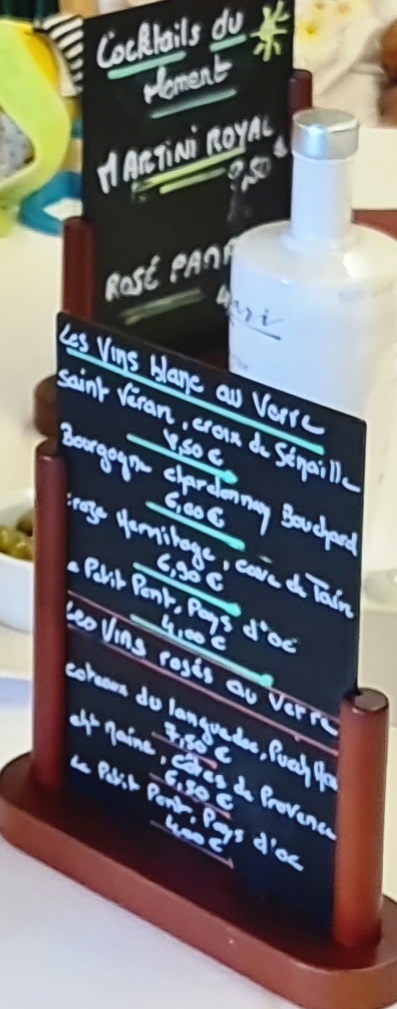 Cocktails du
Moment
MARTINI ROYAL
9,50
ROSÉ PAMP
Les Vins blanc au Verre
Saint Véran, croix de Sénaille
7,50 €
Bourgogne chardonnay Bouchard
6,60 €
Hermitage, cave de Tain
6,90 €
Le Petit Pont, Pays d'oc
4,00 €
Les Vins rosés au Verre
coteaux du languedoc, Puech
7,50 €
Maïne, côtes de Provence
6,50 €
Le Petit Pont, Pays d'oc
4,00 €